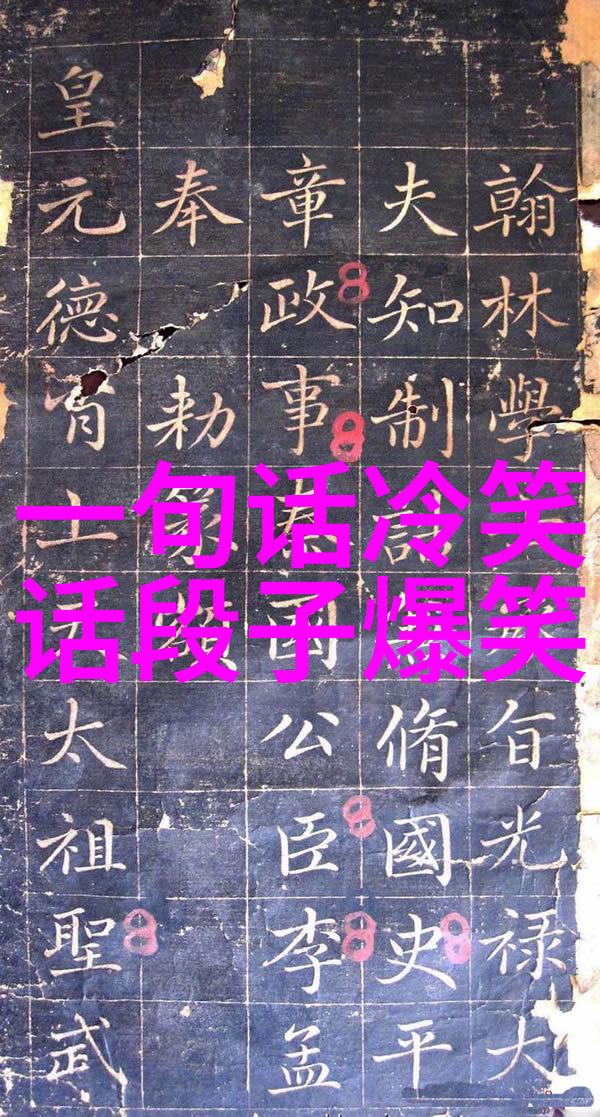 一句话冷笑
话段子爆笑
翰林學旨光禄大
夫知制脩國史平
章政事國公臣李孟
奉勅篆
皇元德土太祖聖武